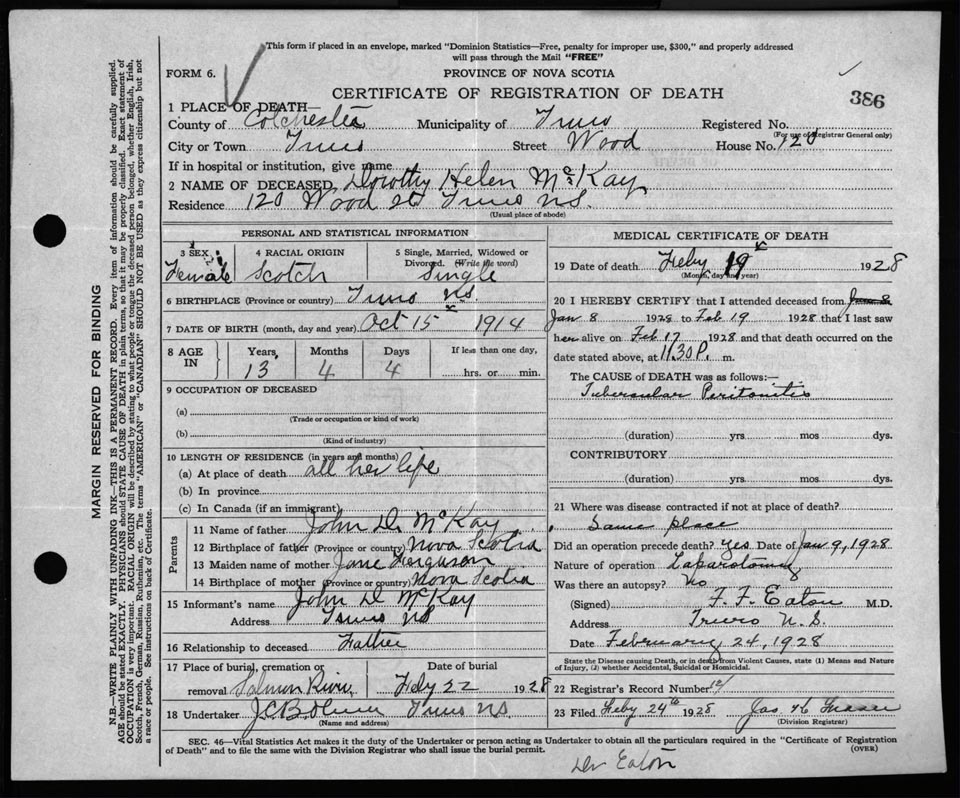 This form if placed in an envelope, marked "Dominion Statistics—Free, penalty for improper use, $300," and properly addressed
will pass through the Mail "FREE"
FORM 6.
PROVINCE OF NOVA SCOTIA
CERTIFICATE OF REGISTRATION OF DEATH
386
1 PLACE OF DEATH—
County of Colchester Municipality of Truro Registered No.
(For use of Registrar General only)
City or Town Truro Street Wood House No. 120
If in hospital or institution, give name
2 NAME OF DECEASED Dorothy Helen McKay
Residence 120 Wood St Truro N.S.
(Usual place of abode)
PERSONAL AND STATISTICAL INFORMATION
3 SEX Female
4 RACIAL ORIGIN Scotch
5 Single, Married, Widowed or Divorced. (Write the word) Single
6 BIRTHPLACE (Province or country) Truro N.S.
7 DATE OF BIRTH (month, day and year) Oct 15 1914
8 AGE IN Years, 13 Months 4 Days 4 If less than one day, hrs. or min.
9 OCCUPATION OF DECEASED
(a)
(Trade or occupation or kind of work)
(b)
(Kind of industry)
10 LENGTH OF RESIDENCE (in years and months)
(a) At place of death all her life
(b) In province
(c) In Canada (if an immigrant)
Parents
11 Name of father John D. McKay
12 Birthplace of father (Province or country) Nova Scotia
13 Maiden name of mother Jane Ferguson
14 Birthplace of mother (Province or country) Nova Scotia
15 Informant's name John D McKay
Address Truro NS
16 Relationship to deceased Father
17 Place of burial, cremation or removal Salmon River
Date of burial Feby 22 1928
18 Undertaker Truro NS
(Name and address)
MEDICAL CERTIFICATE OF DEATH
19 Date of death Feby 19 1928
(Month, day and year)
20 I HEREBY CERTIFY that I attended deceased from
Jan 8 1928 to Feb 19 1928 that I last saw
her alive on Feb 17 1928 and that death occurred on the
date stated above, at 11.30 P. m.
The CAUSE of DEATH was as follows:—
Tubercular Peritonitis
(duration) yrs mos dys.
CONTRIBUTORY
(duration) yrs. mos dys.
21 Where was disease contracted if not at place of death?
Same place
Did an operation precede death? yes Date of Jan 9, 1928
Nature of operation Laparotomy
Was there an autopsy? No
(Signed) F. F. Eaton M.D.
Address Truro N.S.
Date February 24, 1928
State the Disease causing Death, or in death from Violent Causes, state (1) Means and Nature
of Injury, (2) whether Accidental, Suicidal or Homicidal.
22 Registrar's Record Number
23 Filed Feby 24th 1928 Jas. H
(Division Registrar)
SEC. 46—Vital Statistics Act makes it the duty of the Undertaker or person acting as Undertaker to obtain all the particulars required in the "Certificate of Registration
of Death" and to file the same with the Division Registrar who shall issue the burial permit.
(OVER)
Dr Eaton
MARGIN RESERVED FOR BINDING
N.B.—WRITE PLAINLY WITH UNFADING INK—THIS IS A PERMANENT RECORD. Every item of information should be carefully supplied.
AGE should be stated EXACTLY. PHYSICIANS should STATE CAUSE OF DEATH in plain terms, so that it may be properly classified. Exact statement of
OCCUPATION is very important. RACIAL ORIGIN will be described by stating to what people or tongue the deceased person belonged, whether English, Irish,
Scotch, French, German, Russian, Ruthenian, etc. The terms "AMERICAN" or "CANADIAN" SHOULD NOT BE USED as they express citizenship but not
a race or people. See instructions on back of Certificate.